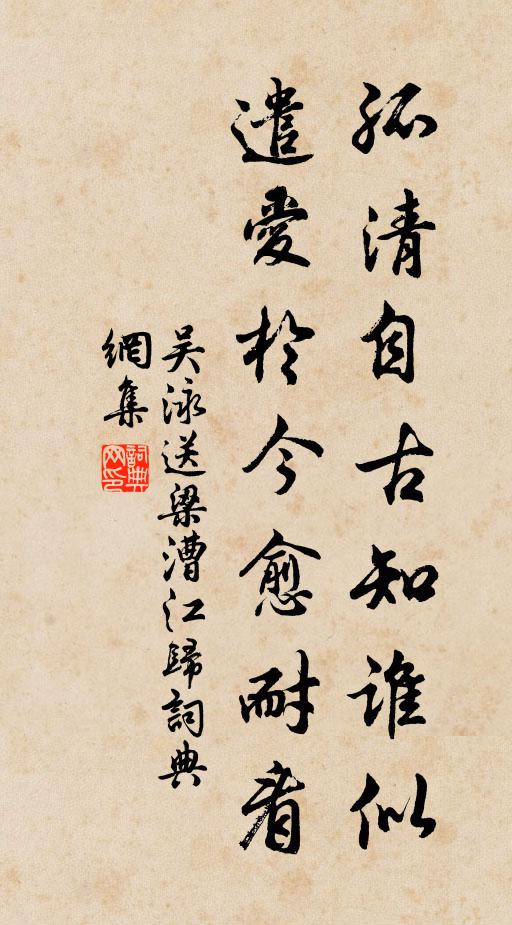 孤清自古知谁似
遣爱於今愈耐看
吴泳送梁漕江归词典
網集
詞典网印